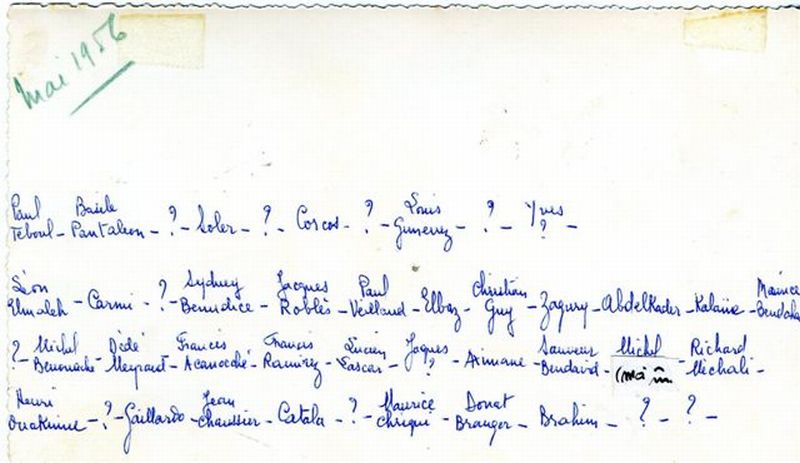 mai 1956
Paul Basile Louis Yves
Teboul - Pantaleon - ? - Soler - ? - Corcos - ? - Gimenez - ? - ? -
Léon Sydney Jacques Paul Christian Maurice
Elmaleh - Carmi - ? - Benudice - Roblès - Veilland - Elbaz - Guy - Zagury - Abdelkader - Kalaïne - Bendaha
? - Michel Dédé Francis Francis Lucien Jaques Sauveur Michel Richard
Benouache - Meyrant - Acanoeché - Ramirez - Lascar - ? - Aimane - Bendavid - (moi Michali -
Henri Jean Maurice Donat
Ouaknine - ? - Gaillardo - Chaussier - Catala - ? - Chriqui - Branger - Brahim - ? - ? -